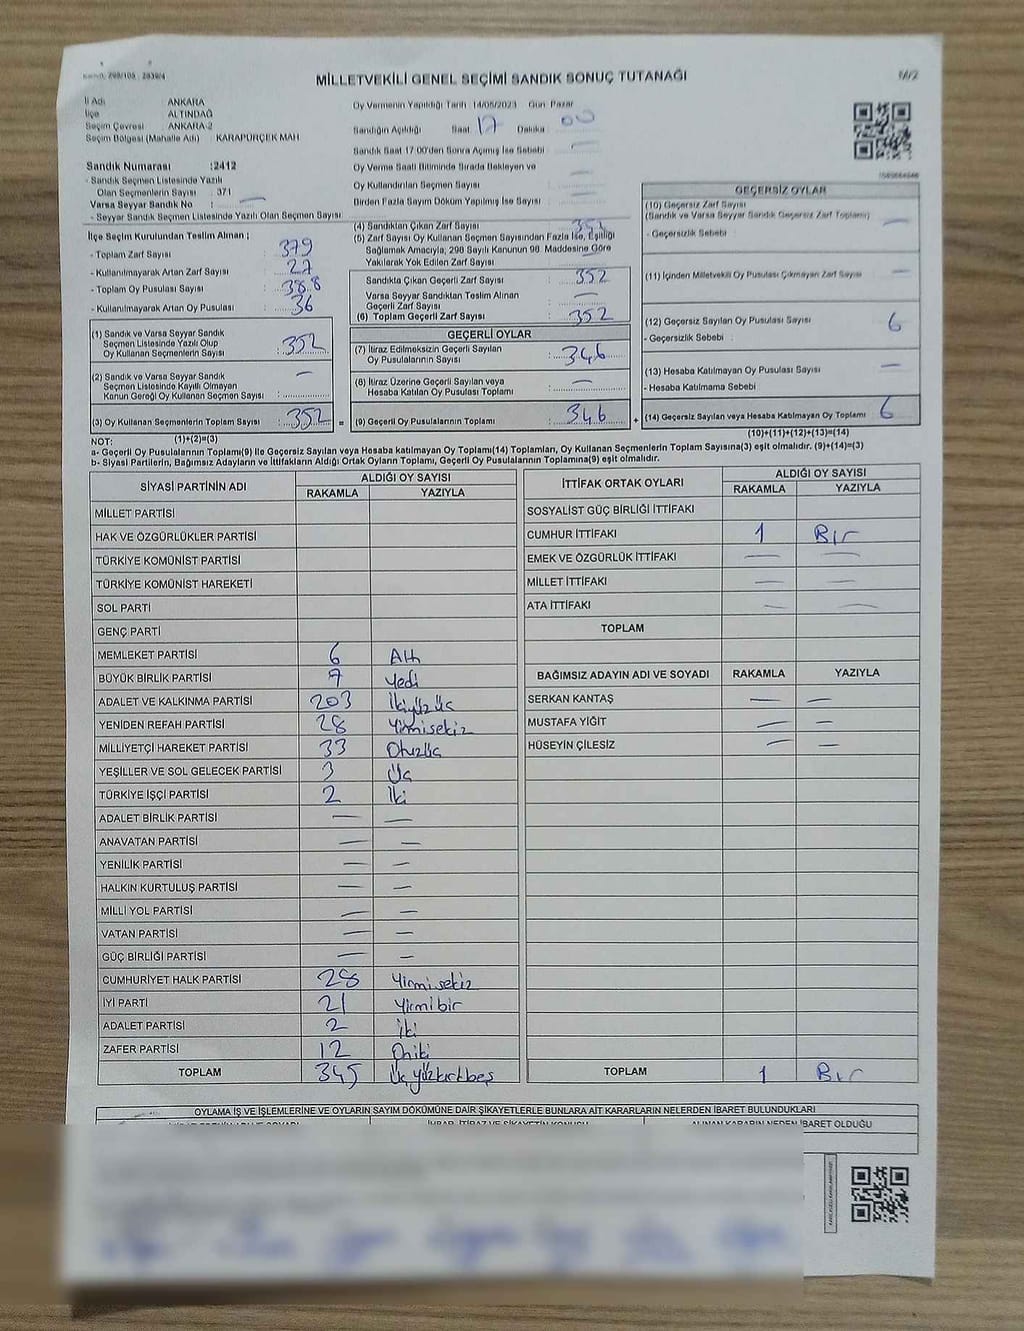 MİLLETVEKİLİ GENEL SEÇİMİ SANDIK SONUÇ TUTANAĞI
İl Adı ANKARA
İlçe ALTINDAĞ
Seçim Çevresi ANKARA-2
Seçim Bölgesi (Mahalle Adı) KARAPÜRÇEK MAH
Sandık Numarası :2412
- Sandık Seçmen Listesinde Yazılı
Olan Seçmenlerin Sayısı : 371
Varsa Seyyar Sandık No : —
- Seyyar Sandık Seçmen Listesinde Yazılı Olan Seçmen Sayısı
Oy Vermenin Yapıldığı Tarih 14/05/2023 Gün Pazar
Sandığın Açıldığı Saat 17 Dakika 00
Sandık Saat 17:00'den Sonra Açılmış İse Sebebi : —
Oy Verme Saati Bitiminde Sırada Bekleyen ve
Oy Kullandırılan Seçmen Sayısı —
Birden Fazla Sayım Döküm Yapılmış İse Sayısı : —
İlçe Seçim Kurulundan Teslim Alınan ;
- Toplam Zarf Sayısı : 379
- Kullanılmayarak Artan Zarf Sayısı : 27
- Toplam Oy Pusulası Sayısı : 388
- Kullanılmayarak Artan Oy Pusulası : 36
(1) Sandık ve Varsa Seyyar Sandık
Seçmen Listesinde Yazılı Olup
Oy Kullanan Seçmenlerin Sayısı : 352
(2) Sandık ve Varsa Seyyar Sandık
Seçmen Listesinde Kayıtlı Olmayan
Kanun Gereği Oy Kullanan Seçmen Sayısı : —
(3) Oy Kullanan Seçmenlerin Toplam Sayısı : 352 =
(4) Sandıktan Çıkan Zarf Sayısı : 352
(5) Zarf Sayısı Oy Kullanan Seçmen Sayısından Fazla İse, Eşitliği
Sağlamak Amacıyla; 298 Sayılı Kanunun 98. Maddesine Göre
Yakılarak Yok Edilen Zarf Sayısı :
Sandıkta Çıkan Geçerli Zarf Sayısı : 352
Varsa Seyyar Sandıktan Teslim Alınan
Geçerli Zarf Sayısı : —
(6) Toplam Geçerli Zarf Sayısı : 352
GEÇERLİ OYLAR
(7) İtiraz Edilmeksizin Geçerli Sayılan
Oy Pusulalarının Sayısı : 346
(8) İtiraz Üzerine Geçerli Sayılan veya
Hesaba Katılan Oy Pusulası Toplamı : —
(9) Geçerli Oy Pusulalarının Toplamı : 346 +
GEÇERSİZ OYLAR
(10) Geçersiz Zarf Sayısı
(Sandık ve Varsa Seyyar Sandık Geçersiz Zarf Toplamı) —
- Geçersizlik Sebebi :
(11) İçinden Milletvekili Oy Pusulası Çıkmayan Zarf Sayısı —
(12) Geçersiz Sayılan Oy Pusulası Sayısı 6
- Geçersizlik Sebebi :
(13) Hesaba Katılmayan Oy Pusulası Sayısı —
- Hesaba Katılmama Sebebi
(14) Geçersiz Sayılan veya Hesaba Katılmayan Oy Toplamı 6
NOT: (1)+(2)=(3) (10)+(11)+(12)+(13)=(14)
a- Geçerli Oy Pusulalarının Toplamı(9) ile Geçersiz Sayılan veya Hesaba katılmayan Oy Toplamı(14) Toplamları, Oy Kullanan Seçmenlerin Toplam Sayısına(3) eşit olmalıdır. (9)+(14)=(3)
b- Siyasi Partilerin, Bağımsız Adayların ve İttifakların Aldığı Ortak Oyların Toplamı, Geçerli Oy Pusulalarının Toplamına(9) eşit olmalıdır.
SİYASİ PARTİNİN ADI ALDIĞI OY SAYISI
RAKAMLA YAZIYLA
MİLLET PARTİSİ
HAK VE ÖZGÜRLÜKLER PARTİSİ
TÜRKİYE KOMÜNİST PARTİSİ
TÜRKİYE KOMÜNİST HAREKETİ
SOL PARTİ
GENÇ PARTİ
MEMLEKET PARTİSİ 6 Altı
BÜYÜK BİRLİK PARTİSİ 7 Yedi
ADALET VE KALKINMA PARTİSİ 203 İkiyüzüç
YENİDEN REFAH PARTİSİ 28 Yirmisekiz
MİLLİYETÇİ HAREKET PARTİSİ 33 Otuzüç
YEŞİLLER VE SOL GELECEK PARTİSİ 3 Üç
TÜRKİYE İŞÇİ PARTİSİ 2 İki
ADALET BİRLİK PARTİSİ — —
ANAVATAN PARTİSİ — —
YENİLİK PARTİSİ — —
HALKIN KURTULUŞ PARTİSİ — —
MİLLİ YOL PARTİSİ — —
VATAN PARTİSİ — —
GÜÇ BİRLİĞİ PARTİSİ — —
CUMHURİYET HALK PARTİSİ 28 Yirmisekiz
İYİ PARTİ 21 Yirmibir
ADALET PARTİSİ 2 iki
ZAFER PARTİSİ 12 Oniki
TOPLAM 345 Üçyüzkırkbeş
İTTİFAK ORTAK OYLARI ALDIĞI OY SAYISI
RAKAMLA YAZIYLA
SOSYALİST GÜÇ BİRLİĞİ İTTİFAKI
CUMHUR İTTİFAKI 1 Bir
EMEK VE ÖZGÜRLÜK İTTİFAKI — —
MİLLET İTTİFAKI — —
ATA İTTİFAKI — —
TOPLAM
BAĞIMSIZ ADAYIN ADI VE SOYADI RAKAMLA YAZIYLA
SERKAN KANTAŞ — —
MUSTAFA YİĞİT — —
HÜSEYİN ÇİLESİZ — —
TOPLAM 1 Bir
OYLAMA İŞ VE İŞLEMLERİNE VE OYLARIN SAYIM DÖKÜMÜNE DAİR ŞİKAYETLERLE BUNLARA AİT KARARLARIN NELERDEN İBARET BULUNDUKLARI
ALINAN KARARIN NEDEN İBARET OLDUĞU